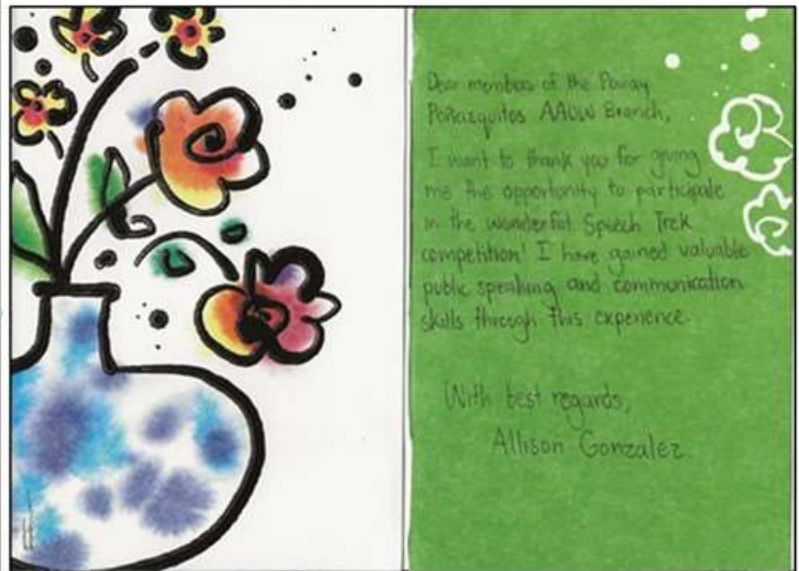 Dear members of the Poway
Peñasquitos AAUW Branch,
I want to thank you for giving
me the opportunity to participate
in the wonderful Speech Trek
competition! I have gained valuable
public speaking and communication
skills through this experience.
With best regards,
Allison Gonzalez